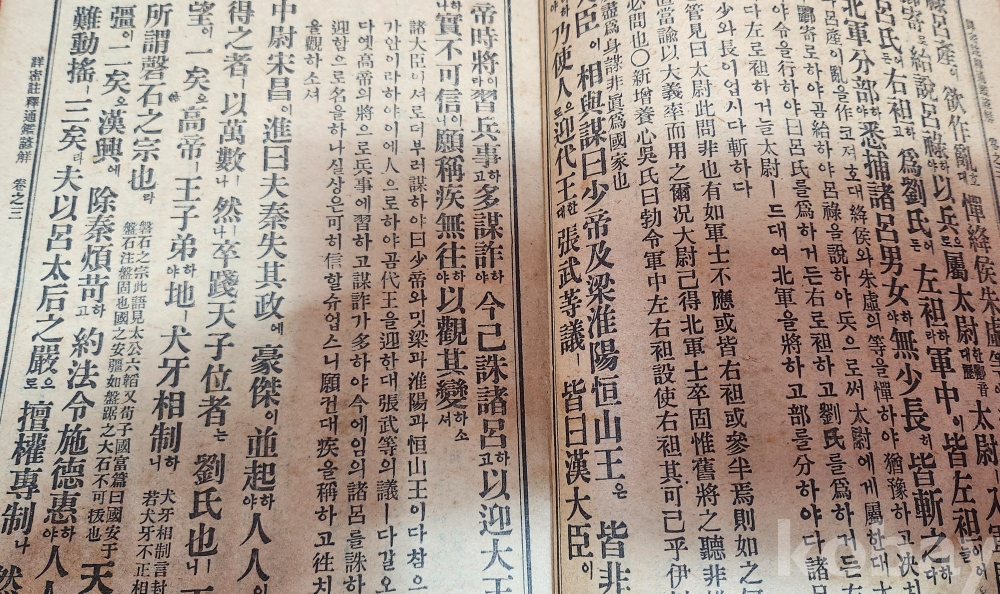 祿呂產이 欲作亂호대 憚絳侯朱虛
酈寄로 紿說呂祿야 以兵으로屬太尉대
呂氏든 右袒고 爲劉氏든 左袒라 軍中이 皆左袒이어
北軍分部야 悉捕諸呂男女야 無少長히 皆斬之다
呂產이 亂을作코져호대 絳侯와 朱虛의等을 憚하야 猶豫하고 決치
酈寄로하야곰 紿하야 呂祿을說하야 兵으로써 太尉에게 屬한대
야 令을行하야曰 呂氏를爲하거든 右로袒하고 劉氏를爲하거든
다 左로袒하거늘 太尉ㅣ드대여 北軍을將하고 部를分하야 다 諸呂
少와 長이업시다 斬하다
管見曰太尉此問非也有如軍士不應或皆右袒或參半焉則如之何
但當諭以大義率而用之爾况太尉已得北軍士卒固惟舊將之聽非
必問也○新增養心吳氏曰勃令軍中左右袒設使右袒其可已乎伊
盡爲身謀非眞爲國家也
大臣이 相與謀曰少帝及梁淮陽恒山王은 皆非
야 乃使人으로 迎代王대 張武等議ㅣ 皆曰漢大臣이
帝時將이라 習兵事고 多謀詐야 今已誅諸呂고 以迎大王
나 實不可信이니 願稱疾無往야 以觀其變쇼셔
諸大臣이서로더부러 謀하야曰 少帝와밋 梁과 淮陽과 恒山王이다 참으
가안이라하야 이에人으로하야곰 代王을迎한대 張武等의議ㅣ다갈오
다 옛高帝의將으로 兵事에習하고 謀詐가多하야 今에임의 諸呂를誅하
迎함으로 名을하나 실상은可히信할슈업스니 願컨대 疾을稱하고 往치
을觀하소셔
中尉宋昌이 進曰夫秦失其政에 豪傑이 並起야 人人
得之者ㅣ 以萬數나 然이나 卒踐天子位者는 劉氏也ㅣ니
望이 一矣오 高帝ㅣ 王子弟야 地ㅣ 犬牙相制니
所謂磐石之宗也라
盤石之宗此語見太公六韜又荀子國富篇曰國安于
盤石注盤固也國之安疆如盤踞之大石不可拔也
犬牙相制言封
若犬牙不正相
彊이 二矣오 漢興에 除秦煩苛고 約法令施德惠야 人人
難動搖ㅣ 三矣라 夫以呂太后之嚴으로 擅權專制나 然
詳密註釋通鑑諺解 卷之三